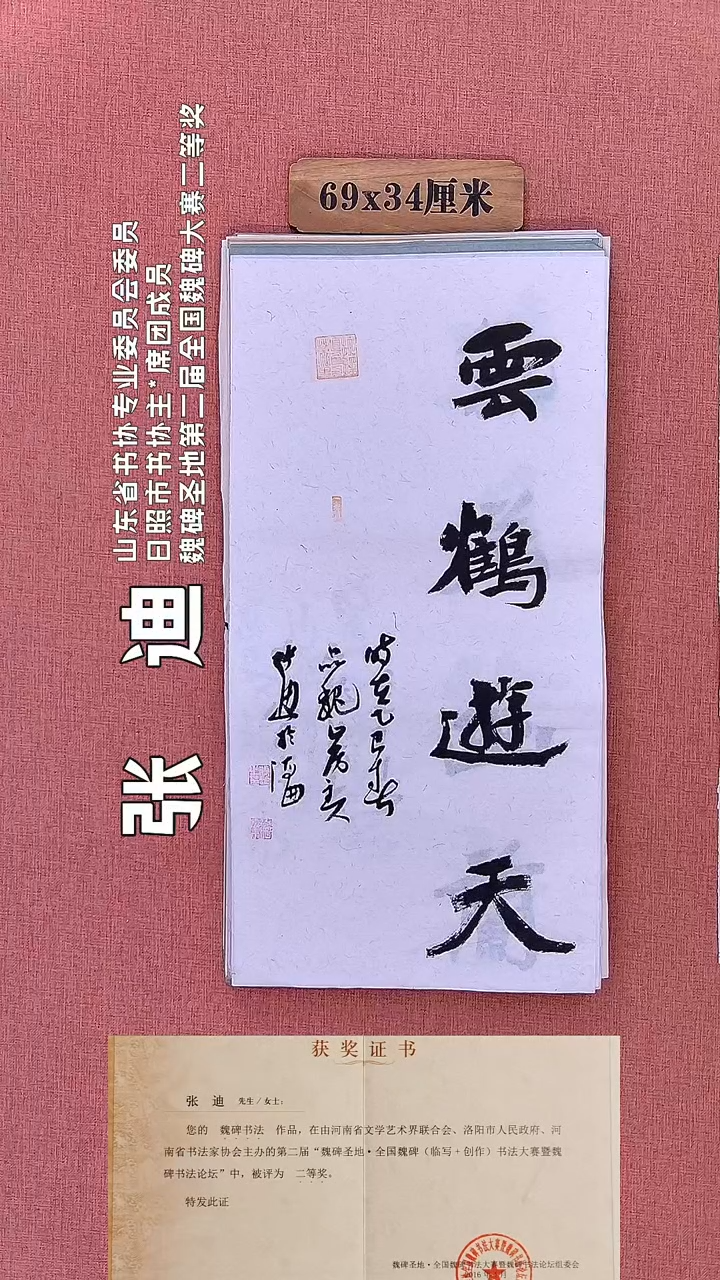 69x34厘米
雲鹤遊天
时在乙巳春
张迪
山东省书协专业委员会委员
日照市书协主*席团成员
魏碑圣地第二届全国魏碑大赛二等奖
获奖证书
张 迪 先生/女士:
您的 魏碑书法 作品，在由河南省文学艺术界联合会、洛阳市人民政府、河
南省书法家协会主办的第二届“魏碑圣地·全国魏碑（临写+创作）书法大赛暨魏
碑书法论坛”中，被评为 二等奖。
特发此证
魏碑圣地·全国魏碑书法大赛暨魏碑书法论坛组委会